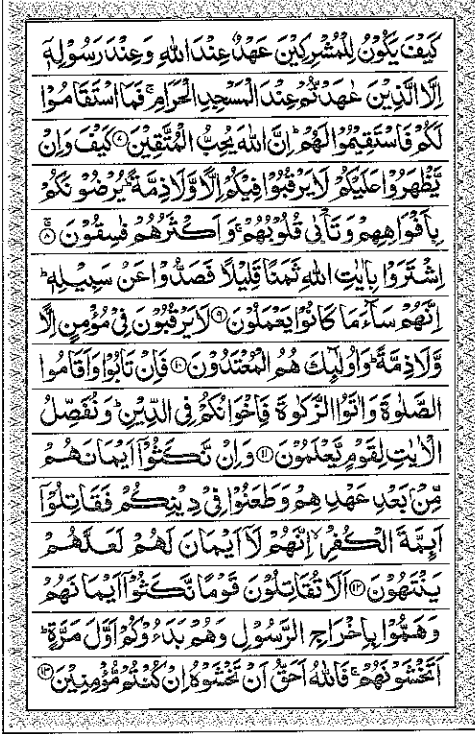 كَيْفَ يَكُوْنُ لِلْمُشْرِكِيْنَ عَهْدٌ عِنْدَ اللّٰهِ وَعِنْدَ رَسُوْلِهٖۤ
اِلَّا الَّذِيْنَ عٰهَدْتُّمْ عِنْدَ الْمَسْجِدِ الْحَرَامِ ۚ فَمَا اسْتَقَامُوْا
لَكُمْ فَاسْتَقِيْمُوْا لَهُمْ ؕ اِنَّ اللّٰهَ يُحِبُّ الْمُتَّقِيْنَ ۷ كَيْفَ وَاِنْ
يَّظْهَرُوْا عَلَيْكُمْ لَا يَرْقُبُوْا فِيْكُمْ اِلًّا وَّلَا ذِمَّةً ؕ يُرْضُوْنَكُمْ
بِاَفْوَاهِهِمْ وَتَاْبٰى قُلُوْبُهُمْ ۚ وَاَكْثَرُهُمْ فٰسِقُوْنَ ۸
اِشْتَرَوْا بِاٰيٰتِ اللّٰهِ ثَمَنًا قَلِيْلًا فَصَدُّوْا عَنْ سَبِيْلِهٖ ؕ
اِنَّهُمْ سَآءَ مَا كَانُوْا يَعْمَلُوْنَ ۹ لَا يَرْقُبُوْنَ فِىْ مُؤْمِنٍ اِلًّا
وَّلَا ذِمَّةً ؕ وَاُولٰٓئِكَ هُمُ الْمُعْتَدُوْنَ ۱۰ فَاِنْ تَابُوْا وَاَقَامُوا
الصَّلٰوةَ وَاٰتَوُا الزَّكٰوةَ فَاِخْوَانُكُمْ فِى الدِّيْنِ ؕ وَنُفَصِّلُ
الْاٰيٰتِ لِقَوْمٍ يَّعْلَمُوْنَ ۱۱ وَاِنْ نَّكَثُوْۤا اَيْمَانَهُمْ
مِّنْۢ بَعْدِ عَهْدِهِمْ وَطَعَنُوْا فِىْ دِيْنِكُمْ فَقَاتِلُوْۤا
اَئِمَّةَ الْكُفْرِ ۙ اِنَّهُمْ لَاۤ اَيْمَانَ لَهُمْ لَعَلَّهُمْ
يَنْتَهُوْنَ ۱۲ اَلَا تُقَاتِلُوْنَ قَوْمًا نَّكَثُوْۤا اَيْمَانَهُمْ
وَهَمُّوْا بِاِخْرَاجِ الرَّسُوْلِ وَهُمْ بَدَءُوْكُمْ اَوَّلَ مَرَّةٍ ؕ
اَتَخْشَوْنَهُمْ ۚ فَاللّٰهُ اَحَقُّ اَنْ تَخْشَوْهُ اِنْ كُنْتُمْ مُّؤْمِنِيْنَ ۱۳